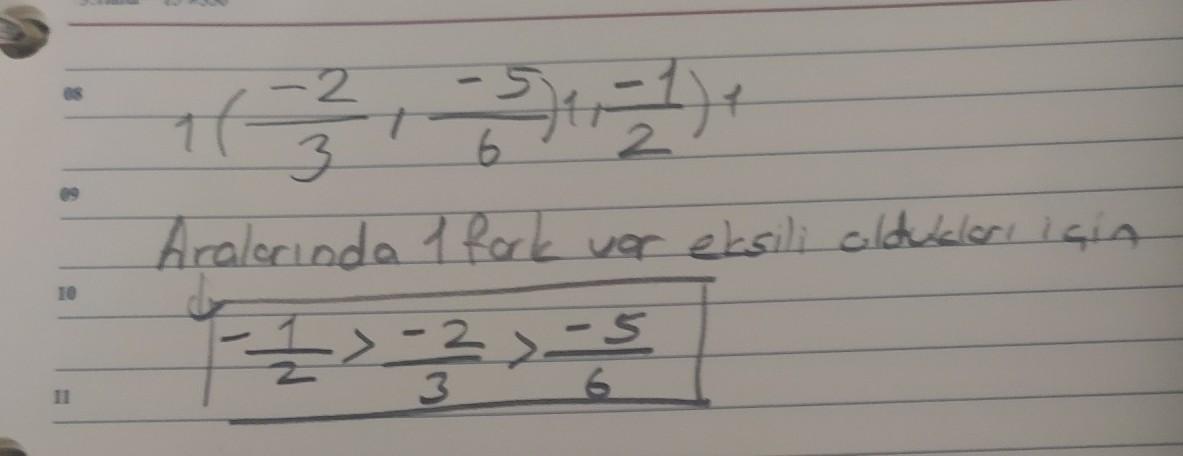 08
1(-2/3, -5/6)1, -1/2)1
09
Aralarında 1 fark var eksili oldukları için
10
-1/2 > -2/3 > -5/6
11